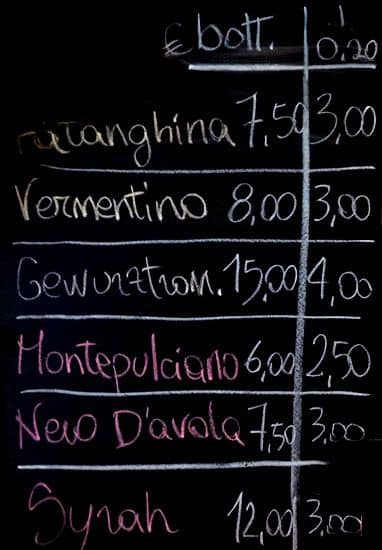 € bott. 0,20
Fatanghina 7,50 3,00
Vermentino 8,00 3,00
Gewurztram. 15,00 4,00
Montepulciano 6,00 2,50
Nero D'avola 7,50 3,00
Syrah 12,00 3,00